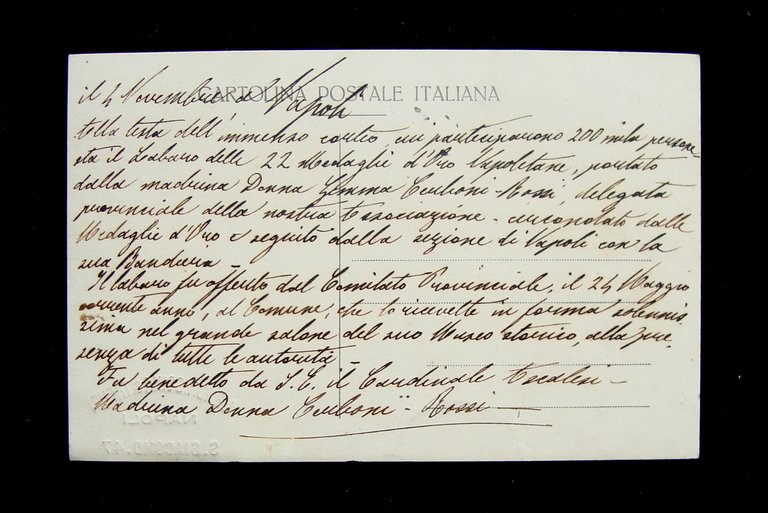 CARTOLINA POSTALE ITALIANA
il 4 Novembre a Napoli
alla testa dell'immenso corteo, cui parteciparono 200 mila persone
sta il Labaro delle 22 Medaglie d'Oro Napoletane, portato
dalla madrina Donna Gemma Cerboni-Rossi, delegata
provinciale della nostra Associazione - circondato dalle
Medaglie d'Oro e seguito dalla sezione di Napoli con la
sua Bandiera -
Il labaro fu offerto dal Comitato Provinciale, il 24 Maggio
corrente anno, al Comune, che lo ricevette in forma solennis
sima nel grande salone del suo Museo storico, alla pre
senza di tutte le autorità -
Fu benedetto da S. E. il Cardinale Ascalesi -
Madrina Donna Cerboni - Rossi
NAPOLI
S. GIACOMO, 47